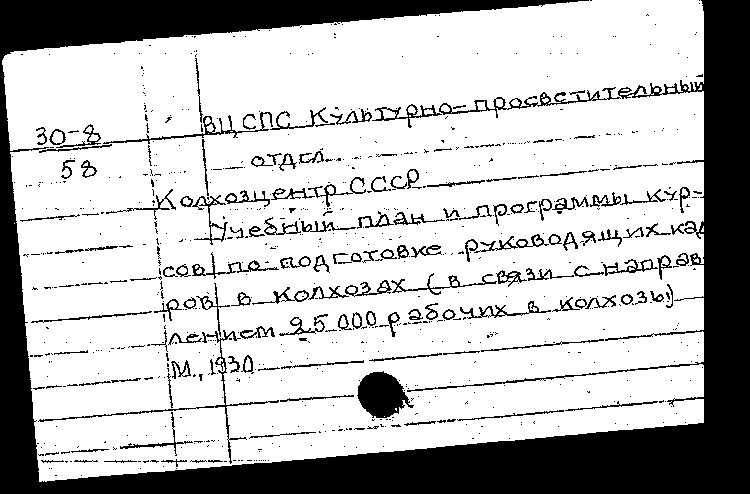 30-8
58
ВЦСПС Культурно-просветительный
отдел.
Колхозцентр СССР
Учебный план и программы кур-
сов по подготовке руководящих кад
ров в колхозах (в связи с направ
лением 25 000 рабочих в колхозы)
М., 1930